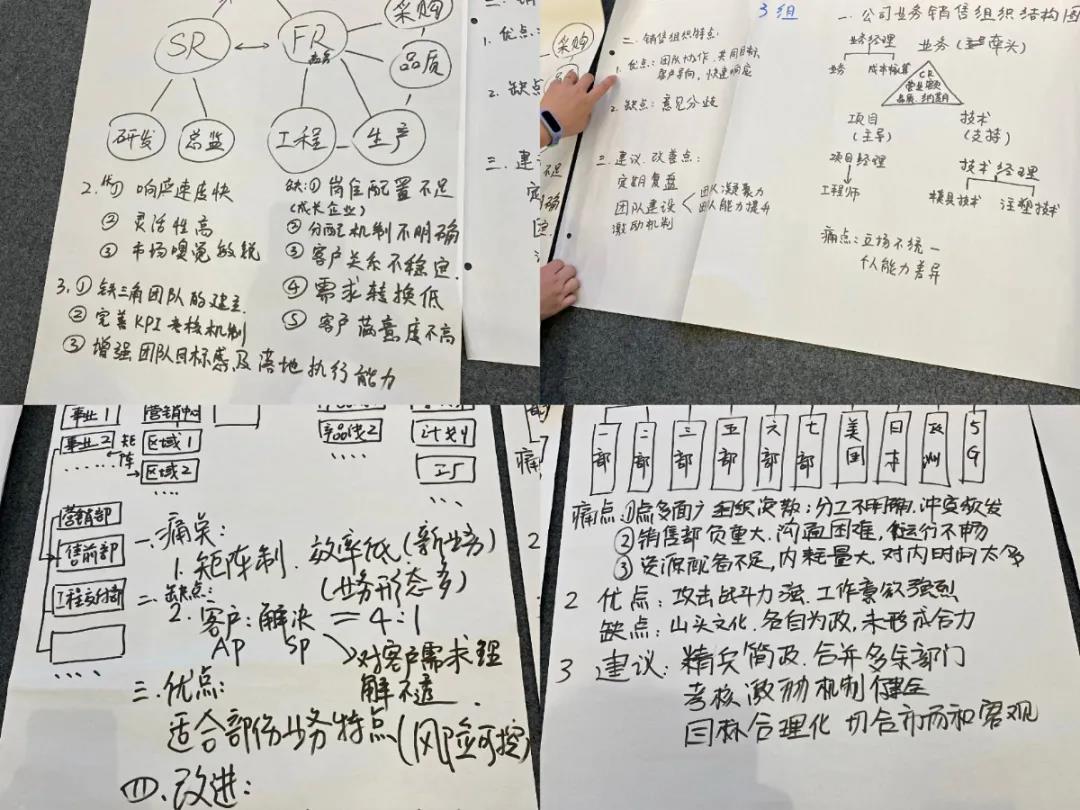 采购
SR
FR
品质
研发
总监
工程
生产
2. 优① 响应速度快
② 灵活性高
③ 市场嗅觉敏锐
缺:① 岗位配置不足
(成长企业)
② 分配机制不明确
③ 客户关系不稳定.
④ 需求转换低
⑤ 客户满意度不高
3. ① 铁三角团队的建立.
② 完善KPI考核机制
③ 增强团队目标感及落地执行能力
1. 优点:
2. 缺点
三. 建议
采购
二. 销售组织特点:
1. 优点: 团队协作. 共同目标.
客户导向, 快速响应
2. 缺点: 意见分歧
三. 建议. 改善点:
定期复盘
团队建设
激励机制
团队凝聚力
团队能力提升
3组
一. 公司业务销售组织结构图
业务经理
业务
成本核算
业务(牵头)
CR
项目
(主导)
技术
(支持)
项目经理
工程师
技术经理
模具技术
注塑技术
痛点: 立场不统一
个人能力差异
事业1
事业2
矩阵
营销中心
区域1
区域2
产品线2
计划
工厂
营销部
售前部
工程交付部
一. 痛点:
1. 矩阵制. 效率低(新业务)
(业务形态多)
二. 缺点:
2. 客户: 解决 = 4:1
AP SP
对客户需求理
解不透.
三. 优点:
适合部份业务特点(风险可控)
四. 改进:
一部
二部
三部
五部
六部
七部
美国
日本
欧洲
5G
痛点: ①点多面广 组织涣散; 分工不明确. 冲突频发
②销售部负重大. 沟通困难, 运行不畅
③资源配备不足, 内耗量大. 对内时间太多
2 优点: 攻击战斗力强. 工作意欲强烈
缺点: 山头文化. 各自为政, 未形成合力
3 建议: 精兵简政. 合并多余部门
考核激励机制健全
目标合理化 切合市场和客观